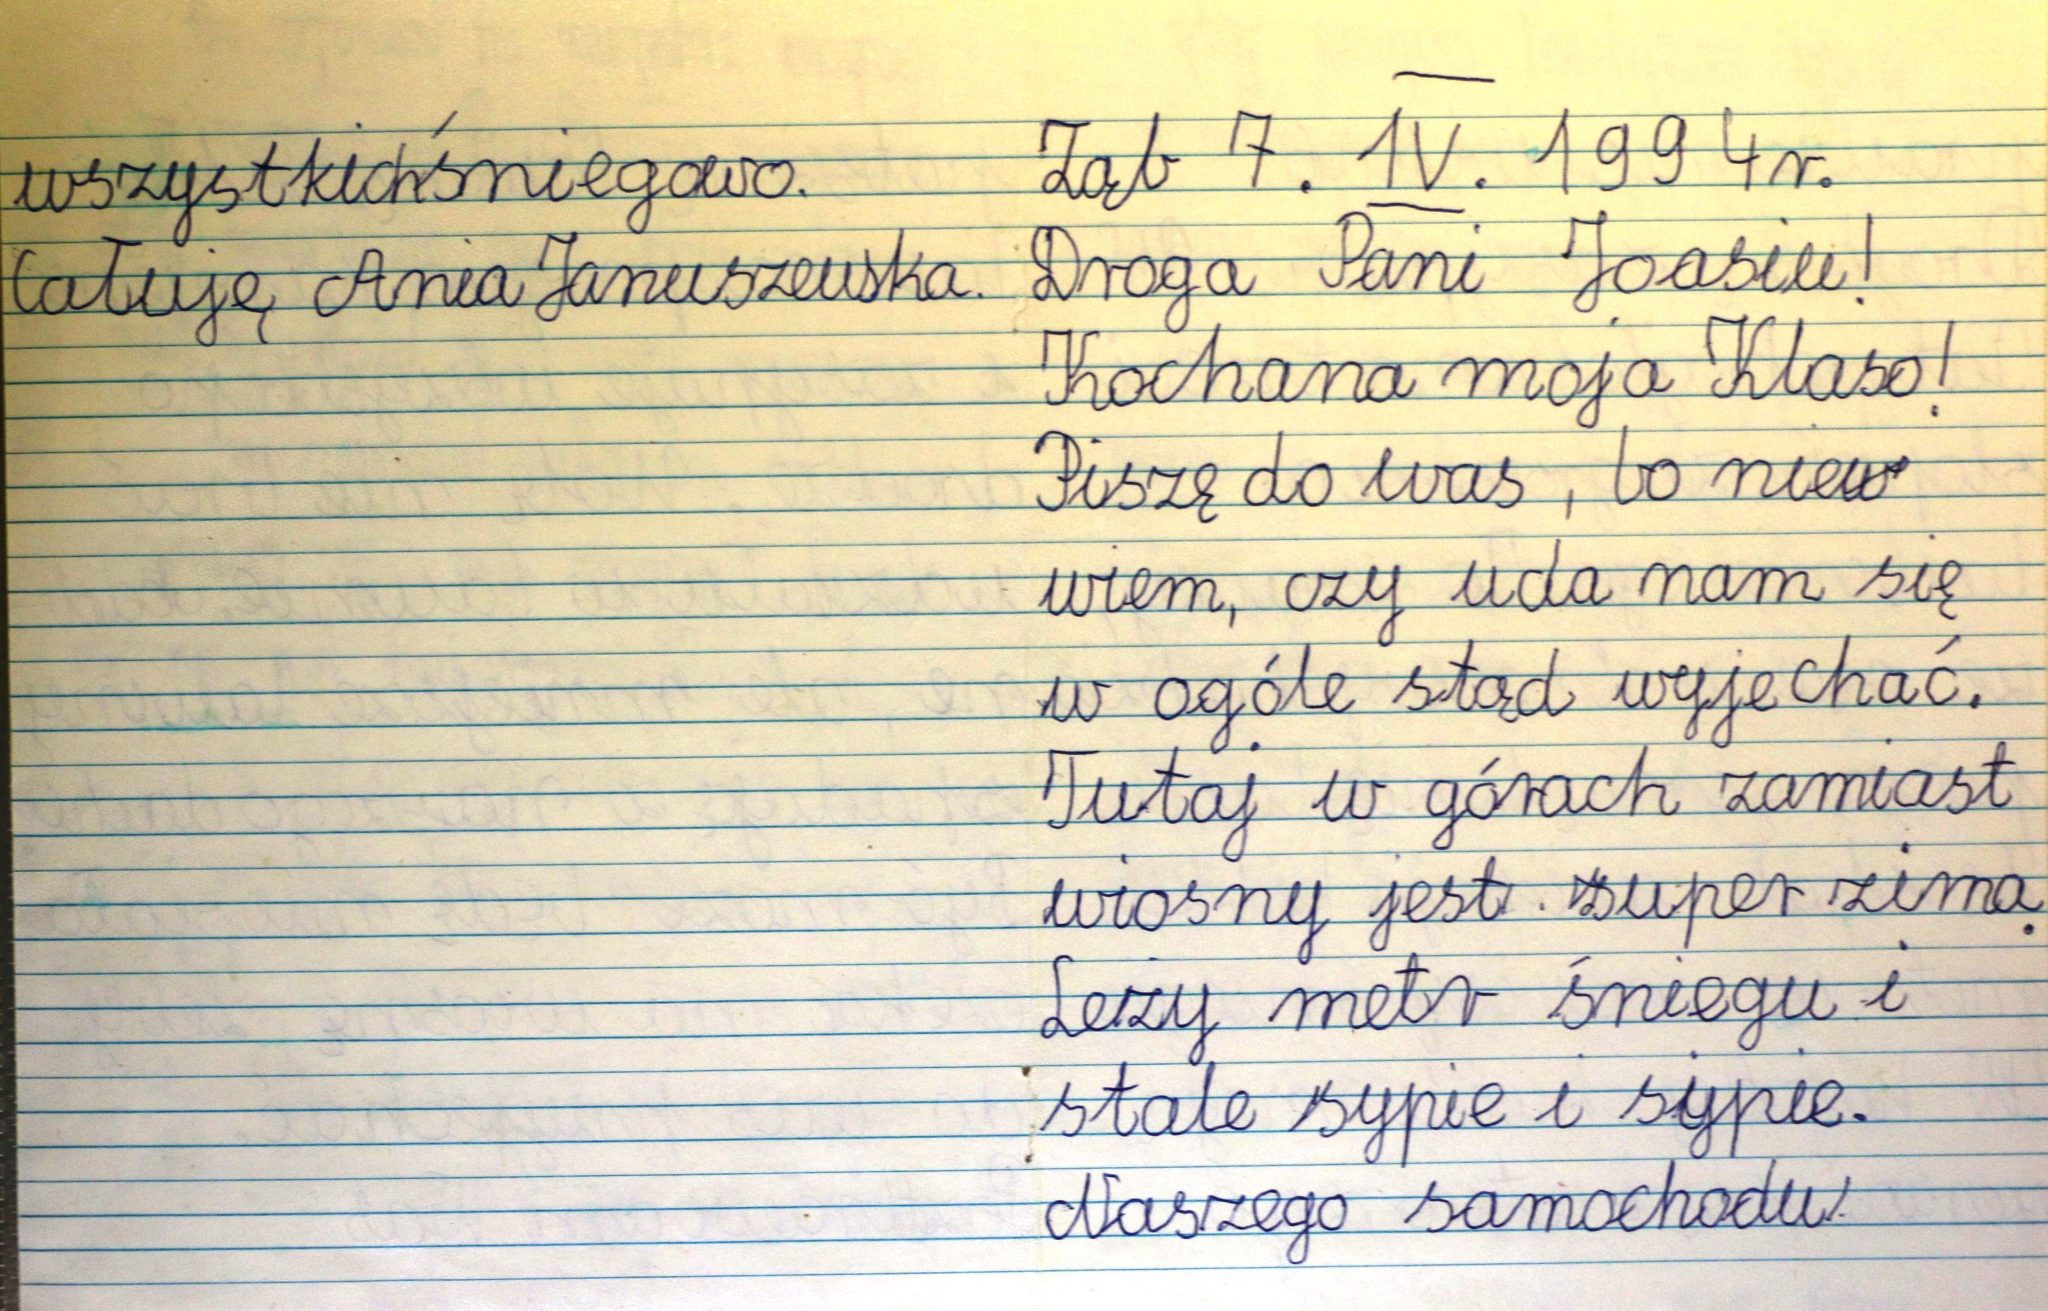 wszystkich śniegowo.
Całuję Ania Januszewska.
Ząb 7. IV. 1994 r.
Droga Pani Joasiu!
Kochana moja Klaso!
Piszę do was, bo niew
wiem, czy uda nam się
w ogóle stąd wyjechać.
Tutaj w górach zamiast
wiosny jest super zima.
Leży metr śniegu i
stale sypie i sypie.
Naszego samochodu